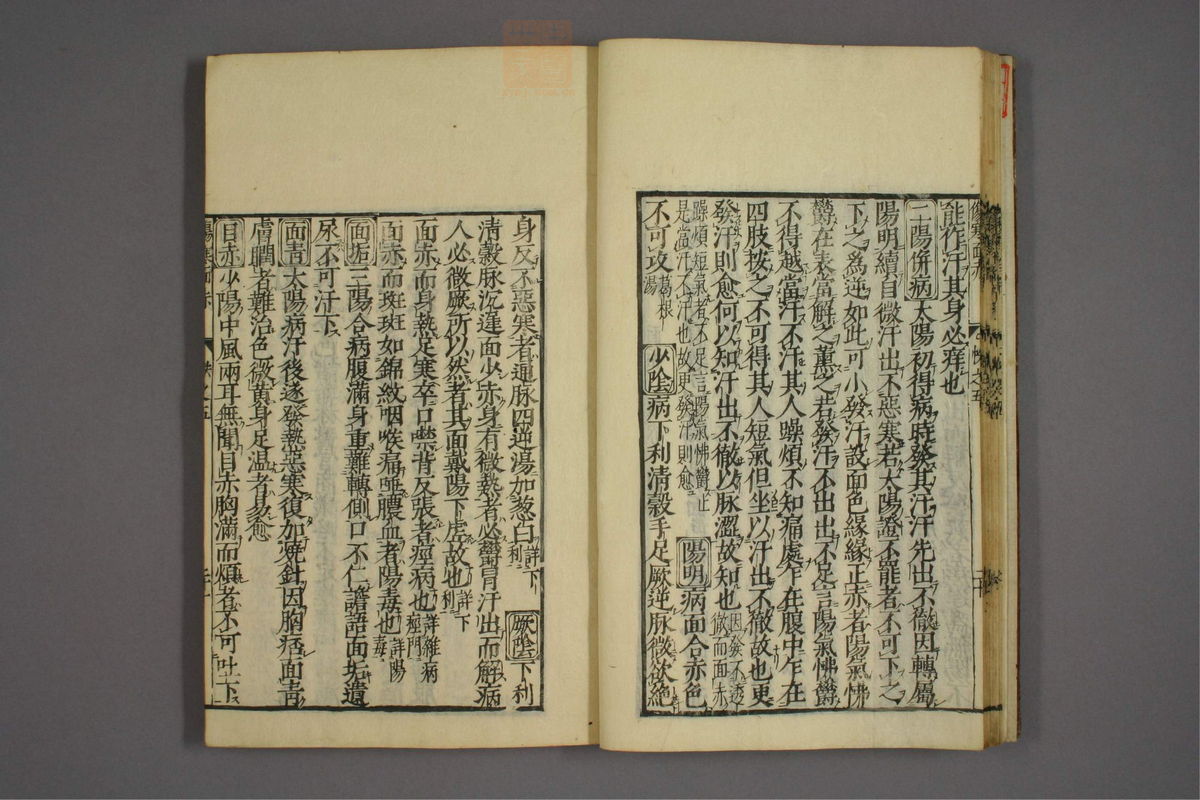 能作汗其身必痒也
二陽併病太陽初得病時發其汗汗先出不徹因轉屬
陽明續自微汗出不惡寒若太陽證不罷者不可下之
下之爲逆如此可小發汗設面色緣緣正赤者陽氣怫
欝在表當解之薰之若發汗不出出不足言陽氣怫欝
不得越當汗不汗其人躁煩不知痛處乍在腹中乍在
四肢按之不可得其人短氣但坐以汗出不徹故也更
發汗則愈何以知汗出不徹以脉澀故知也因發不透徹而面赤
躁煩短氣者不足言陽氣怫欝止是當汗不汗也故更發汗則愈陽明病面合赤色
不可攻葛根湯少陰病下利清穀手足厥逆脉微欲絶
身反不惡寒者通脉四逆湯加葱白詳下利厥陰下利
清穀脉沉遲面少赤身有微熱者必欝冒汗出而解病
人必微厥所以然者其面戴陽下虚故也詳下利
面赤而身熱足寒卒口噤背反張者痙病也詳雜病痙門
面赤而斑斑如錦紋咽喉痛唾膿血者陽毒也詳陽毒
面垢三陽合病腹滿身重難轉側口不仁譫語面垢遺
尿不可汗下
面青太陽病汗後遂發熱惡寒復加燒針因胸煩面青
膚瞤者難治色微黄身足温者易愈
目赤少陽中風兩耳無聞目赤胸滿而煩者不可吐下